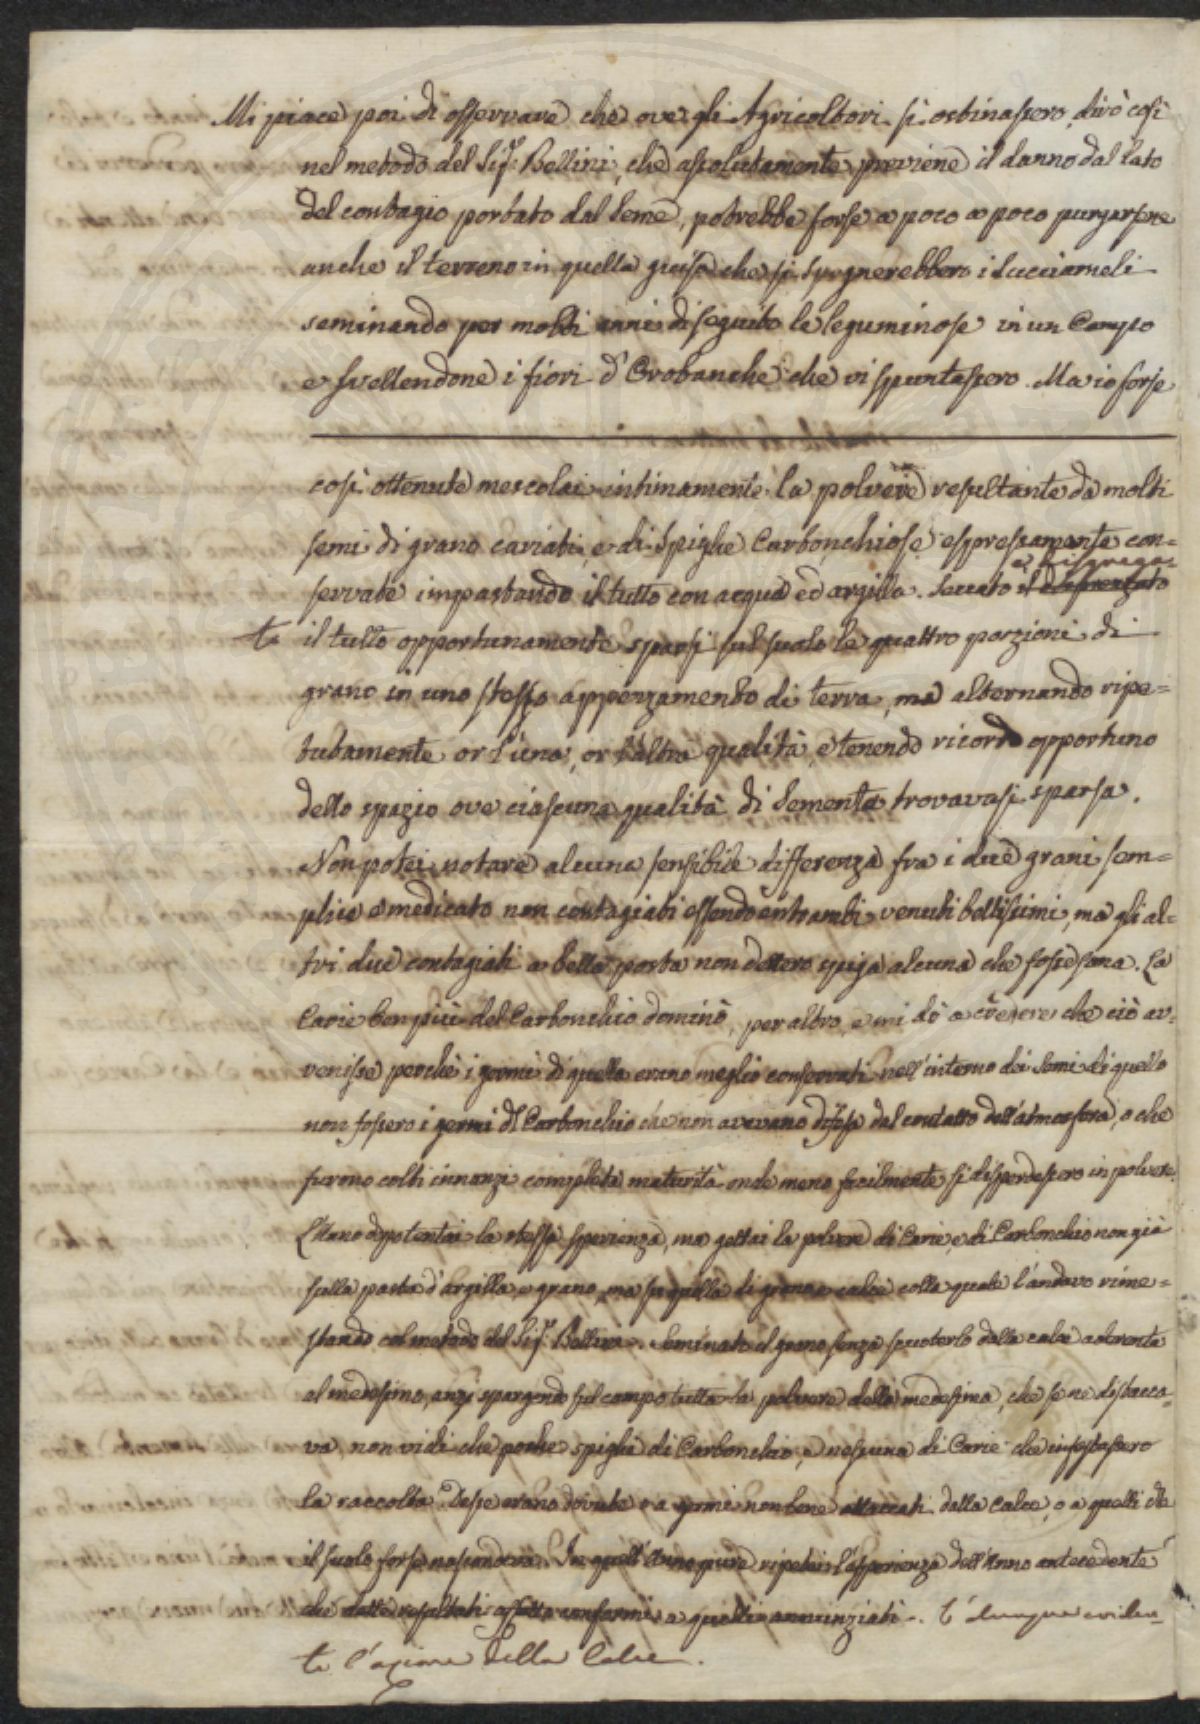 Mi piace poi di osservare che ove gli Agricoltori si ostinassero, dirò così
nel metodo del Sig.r Bellini, che assolutamente previene il danno dal lato
del contagio portato dal Seme, potrebbe forse a poco a poco purgarsene
anche il terreno in quella guisa che si spegnerebbero i Succiameli
seminando per molti anni di seguito le leguminose in un Campo
e svellendone i fiori d'Orobanche che vi spuntassero. Ma io forse
così ottenute mescolai intimamente la polvere resultante da molti
semi di grano cariati, e di Spighe Carbonchiose espressamente con=
e disgrega=
servate impastando il tutto con acqua ed argilla. Seccato il
to il tutto opportunamente sparsi sul suolo le quattro porzioni di
grano in uno stesso appezzamento di terra, ma alternando ripe=
tutamente or l'una, or l'altra qualità, e tenendo ricordo opportuno
dello spazio ove ciascuna qualità di Sementa trovavasi sparsa.
Non potei notare alcuna sensibile differenza fra i due grani sem=
plice e medicato non contagiati essendo entrambi venuti bellissimi, ma gli al=
tri due contagiati a bella posta non dettero spiga alcuna che fosse sana. La
Carie ben più del Carbonchio dominò, per altro, e mi dò a credere che ciò av=
venisse perchè i germi di quella erano meglio conservati nell'interno dei Semi di quello
non fossero i germi del Carbonchio che non avevano difesa dal contatto dell'atmosfera, o che
furono colti innanzi completa maturità onde meno facilmente si disperdessero in polvere.
L'Anno dipoi tentai la stessa sperienza, ma gettai la polvere di Carie, e di Carbonchio non già
sulla pasta d'argilla e grano, ma su quella di grano e calce colla quale l'andavo rime=
stando col metodo del Sig.r Bellini. Seminato il grano senza scuoterlo dalla calce aderente
al medesimo, anzi spargendo sul campo tutta la polvere della medesima, che se ne distacca=
va, non vidi che poche spighe di Carbonchio, e nessuna di Carie che infestassero
la raccolta. Desse erano dovute o a germi non bene attaccati dalla Calce, o a quelli che
il suolo forse nascondeva. In quell'Anno pure ripetei l'esperienza dell'Anno antecedente
che dette resultati affatto conformi a quelli annunziati. È dunque eviden=
te l'azione della Calce.